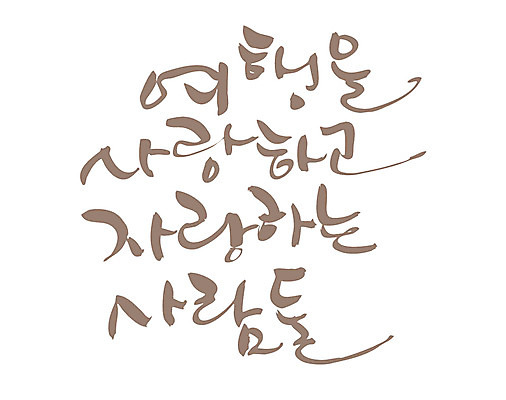 여행을
사랑하고
자랑하는
사람들